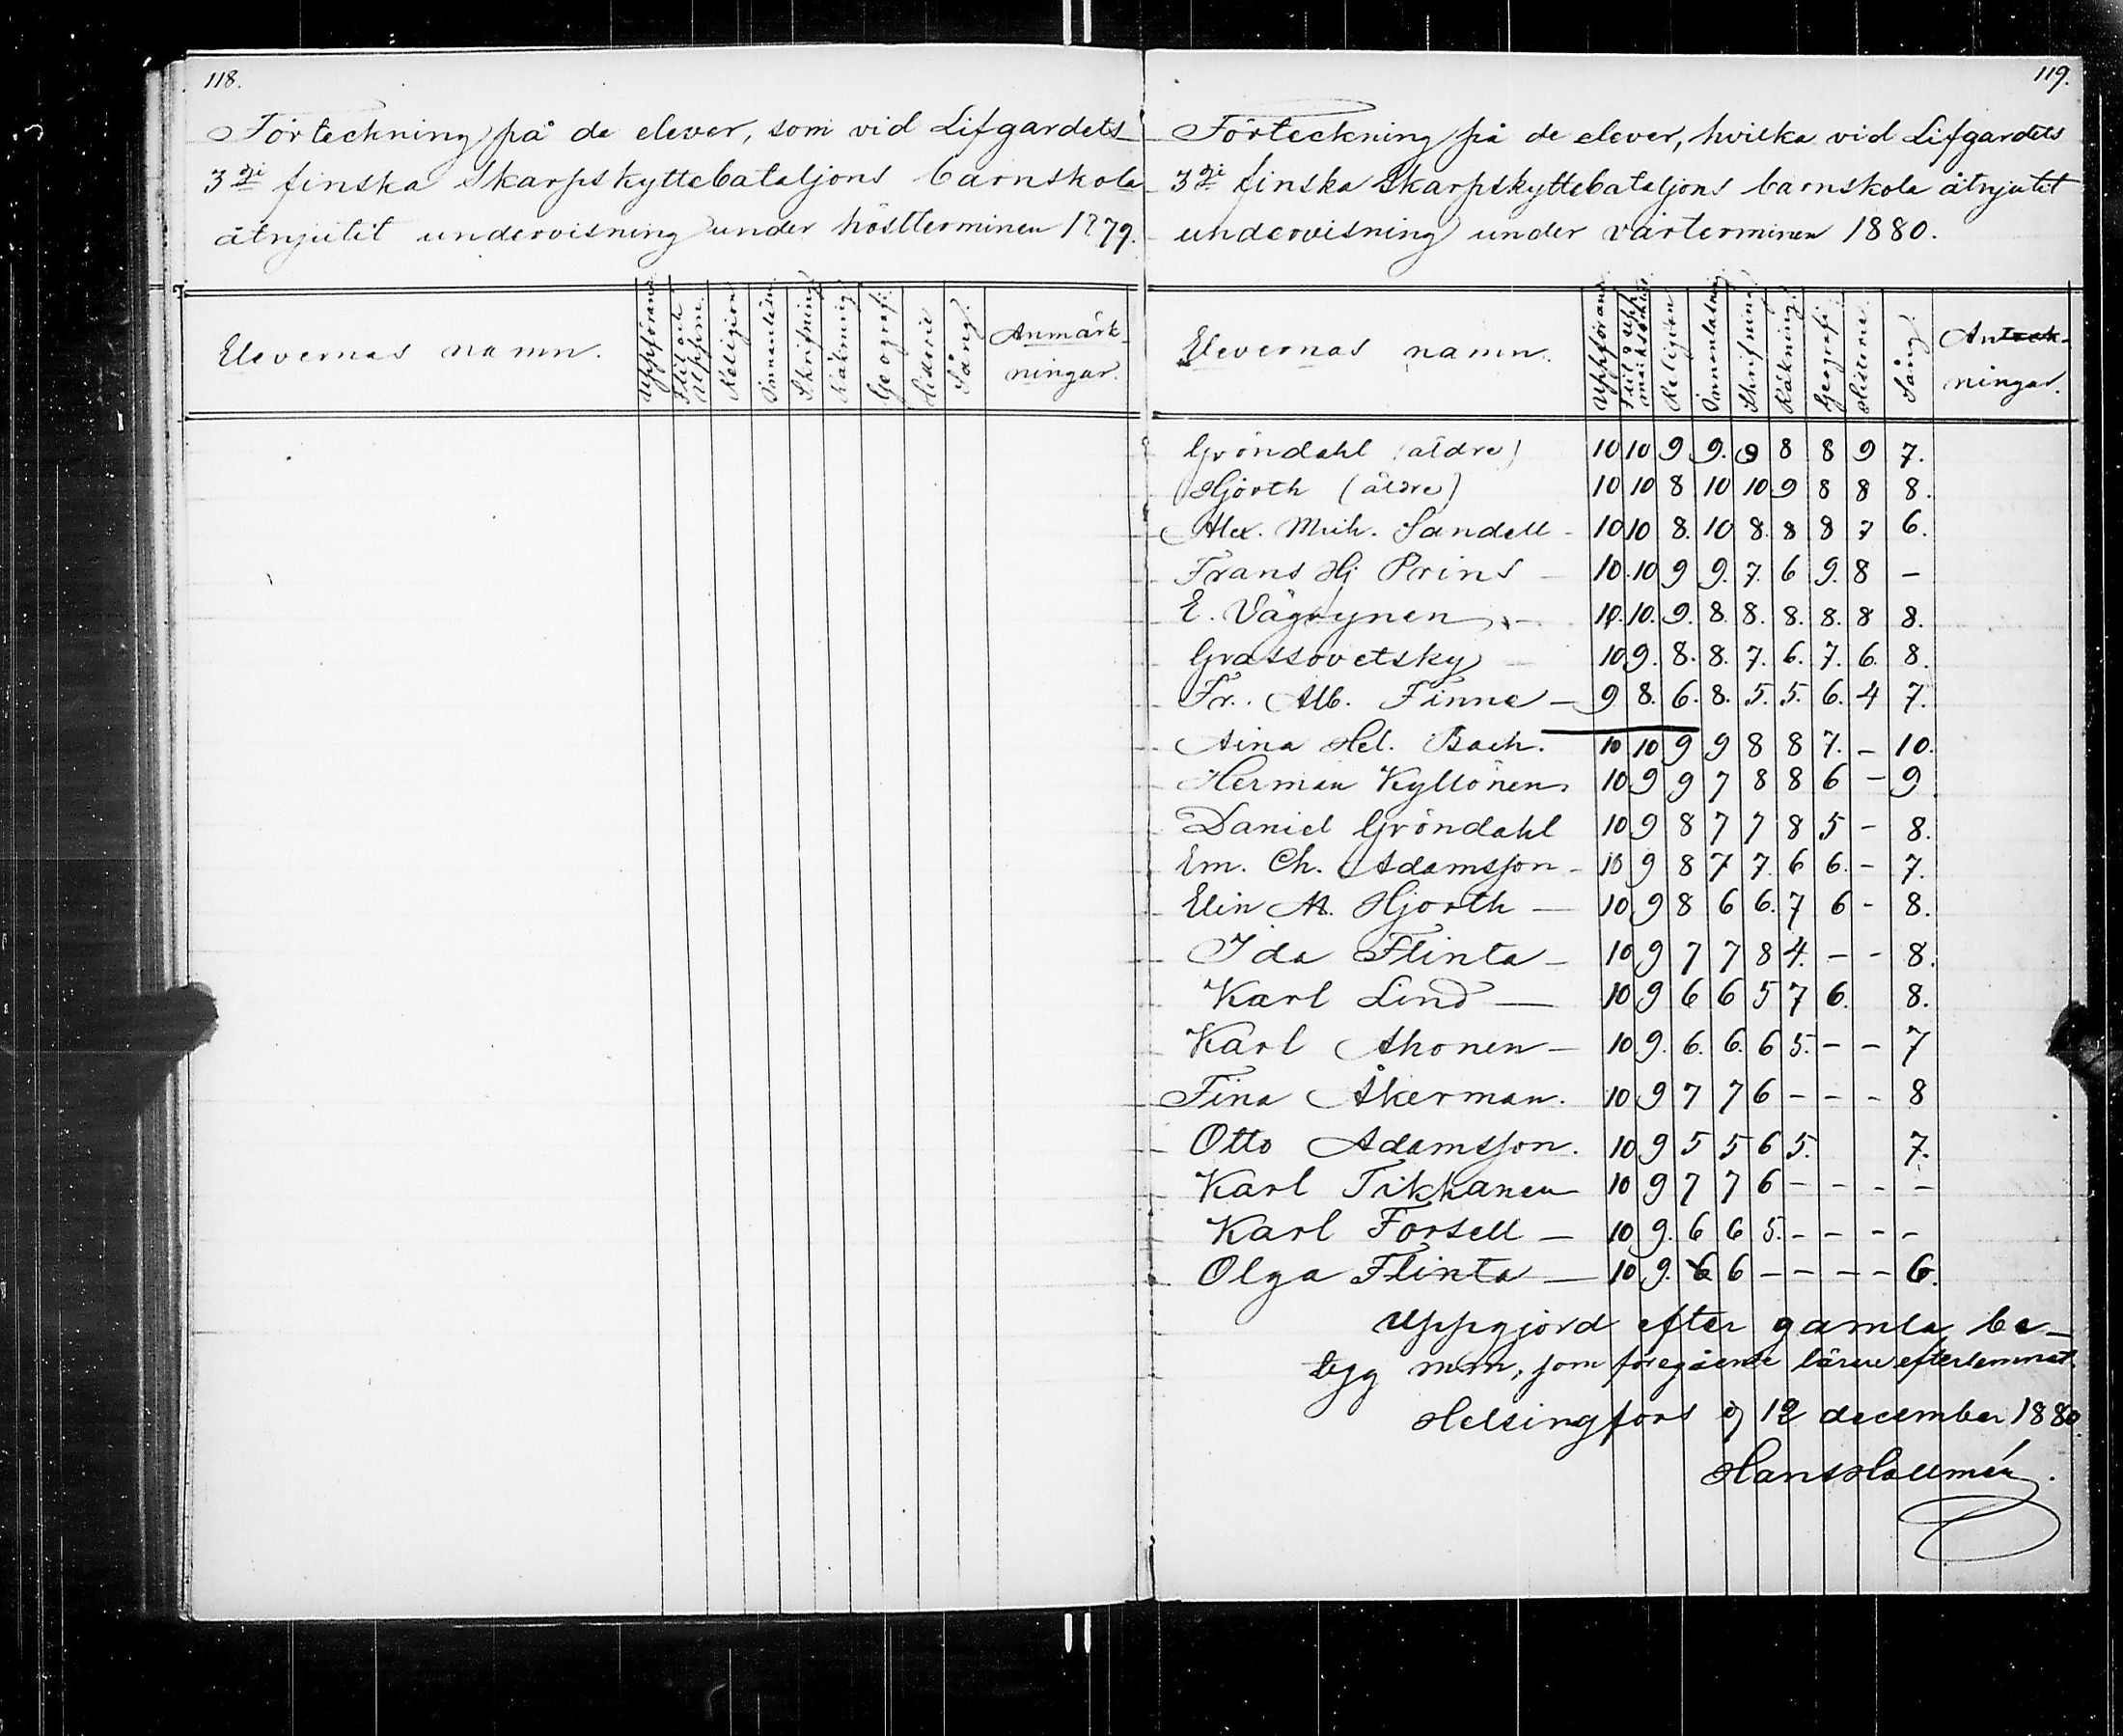 118.
Förteckning på de elever, som vid Lifgardets
3dje finska Skarpskyttebataljons barnskola
åtnjutit undervisning under höstterminen 1879.
Elevernas namn. Uppförande Flit och Uppm. Religion Innanläsn. Skrifning Räkning Geografi. Historie Sång. Anmärk-
ningar.
119.
Förteckning på de elever, hvilka vid Lifgardets
3dje finska Skarpskyttebataljons barnskola åtnjutit
undervisning under vårterminen 1880.
Elevernas namn. Uppförande Flit o upp- märksamhet Religion Innanläsning Skrifning Räkning. Geografi. Historie. Sång.
ningar.
Gröndahl (äldre) 10 10 9 9. 9 8 8 9 7.
Hjorth (äldre) 10 10 8 10 10 9 8 8 8.
Alex. Mich. Sandell - 10 10 8. 10 8. 8 8 7 6.
Frans Hj Prins - 10. 10 9 9. 7. 6 9. 8 -
E. Vägvynen - 10. 10. 9. 8. 8. 8. 8. 8 8.
Grassovetsky - 10 9. 8. 8. 7. 6. 7. 6. 8.
Fr. Alb. Finne - 9 8. 6. 8. 5. 5. 6. 4 7.
Aina Hel. Bach. 10 10 9 9 8 8 7. - 10.
Herman Kyllönen 10 9 9 7 8 8 6 - 9.
Daniel Gröndahl 10 9 8 7 7 8 5 - 8.
Em. Ch. Adamsson - 10 9 8 7 7. 6 6. - 7.
Elin M. Hjorth - 10 9 8 6 6. 7 6 - 8.
Ida Flinta - 10 9 7 7 8 4. - - 8.
Karl Lind - 10 9 6 6 5 7 6. 8.
Karl Ahonen - 10 9. 6. 6. 6 5. - - 7
Fina Åkerman. 10 9 7 7 6 - - - 8
Otto Adamsson. 10 9 5 5 6 5. 7.
Karl Tikkanen 10 9 7 7 6 - - - -
Karl Forsell - 10 9. 6 6 5. - - - -
Olga Flinta - 10 9. 6 6 - - - - 6.
Uppgjord efter gamla be-
tyg m.m., som föregående lärare efterlemnat.
Helsingfors d 12 december 1880.
Hans Hallmén.